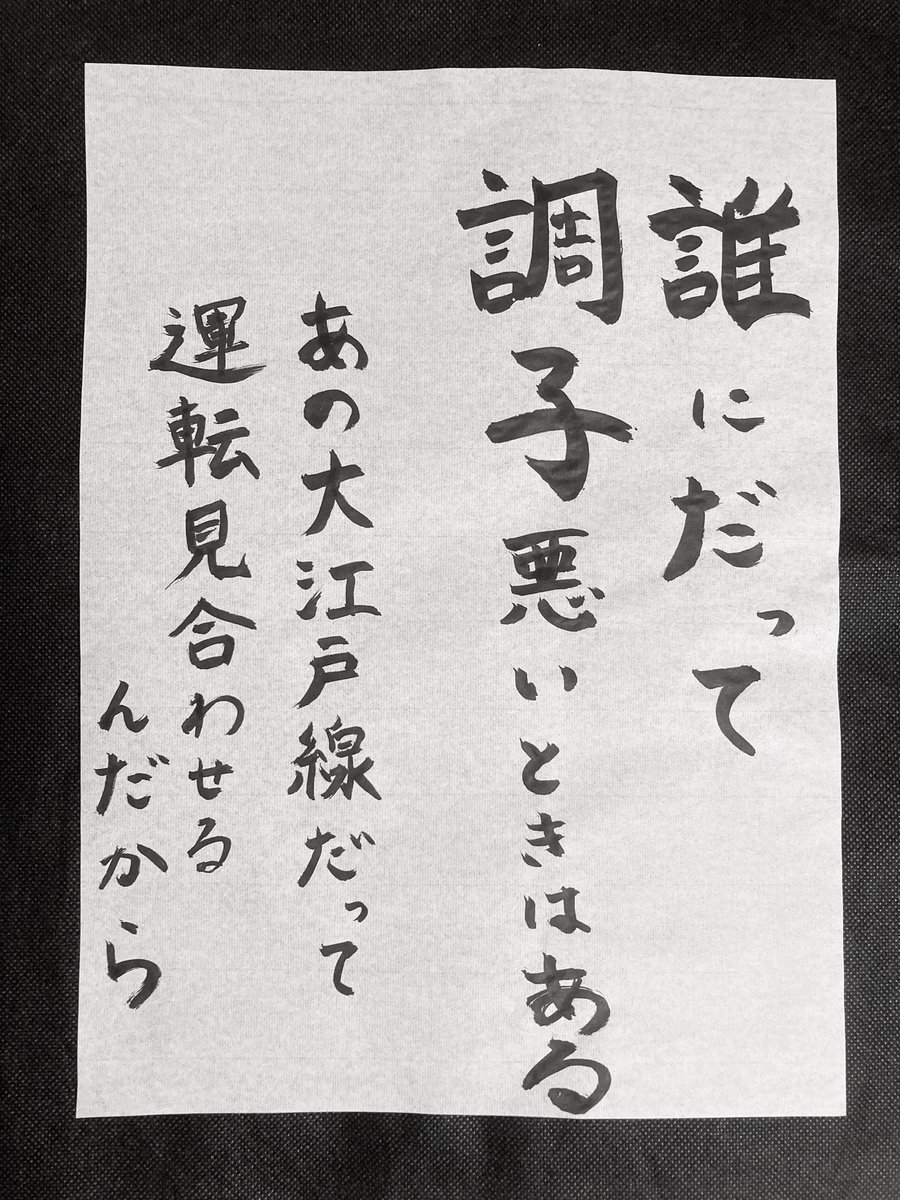 誰にだって
調子悪いときはある
あの大江戸線だって
運転見合わせる
んだから